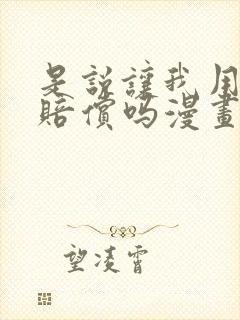 是説讓我用
賠償嗎漫畫
望凌霄